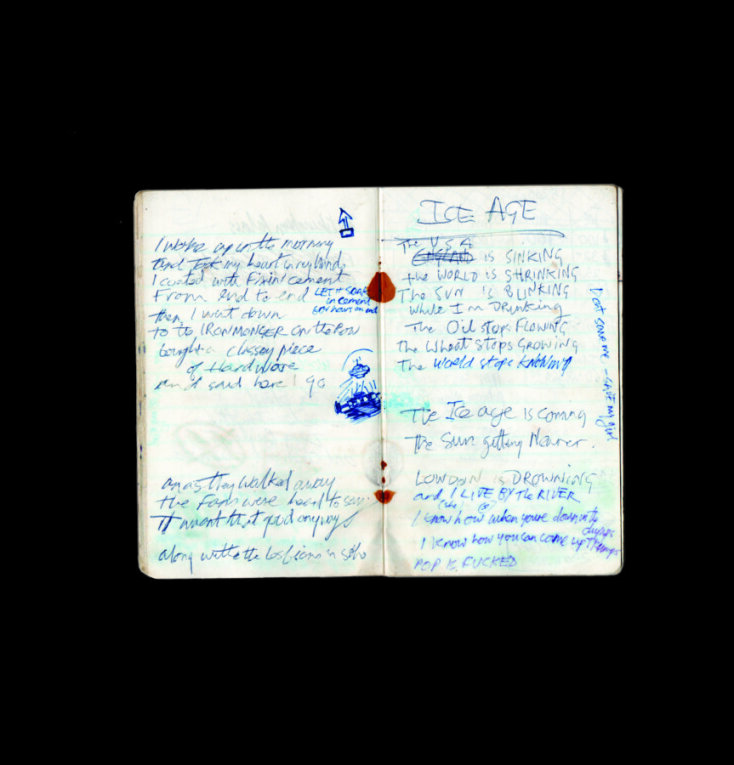 I woke up in the morning
And Took my heart in my hands
I coated with Fixin cement
From end to end
LET it SOAK
in cement
for hours on end
then I went down
to the IRONMONGER on the ROW
bought a classy piece
of Hardware
an it said here I go
an as they walked away
the Fans were heard to say
It wasnt that good anyways
along with the lesbians in soho
ICE AGE
The U.S.A
ENGLAND IS SINKING
the WORLD IS SHRINKING
The SUN IS BLINKING
While I'm DRINKING
The Oil stops FLOWING
The Wheat stops GROWING
The World stops KNOWING
The Ice age is coming
The Sun getting Nearer.
LONDON is DROWNING
and I LIVE BY the RIVER
I know how when youre down in the
dumps
I know how you can come up Trumps
POP IS FUCKED
my girl